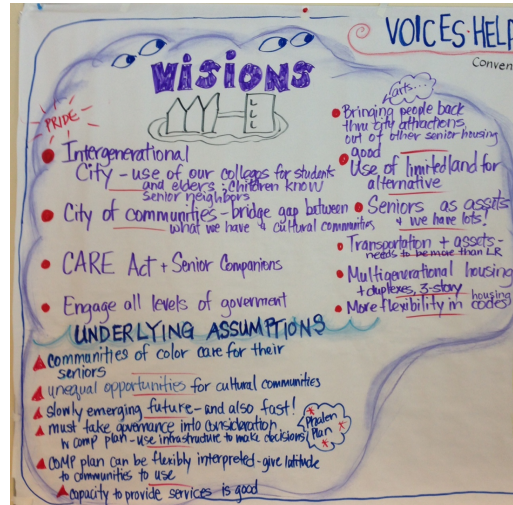 VOICES·HELP
Conven
VISIONS
PRIDE
Intergenerational
City - use of our colleges for students
and elders; children know
senior neighbors
City of communities - bridge gap between
what we have & cultural communities
CARE Act + Senior Companions
Engage all levels of goverment
arts...
Bringing people back
thru city attractions,
out of other senior housing
good
Use of limited land for
alternative
Seniors as assets
& we have lots!
Transportation + assets -
needs to be more than LR
Multigenerational housing
+ duplexes, 3-story
More flexibility in housing
codes
UNDERLYING ASSUMPTIONS
communities of color care for their
seniors
unequal opportunities for cultural communities
slowly emerging future - and also fast!
must take governance into consideration
w comp plan - use infrastructure to make decisions
Phalen
Plan
COMP plan can be flexibly interpreted - give latitude
to communities to use
capacity to provide services is good